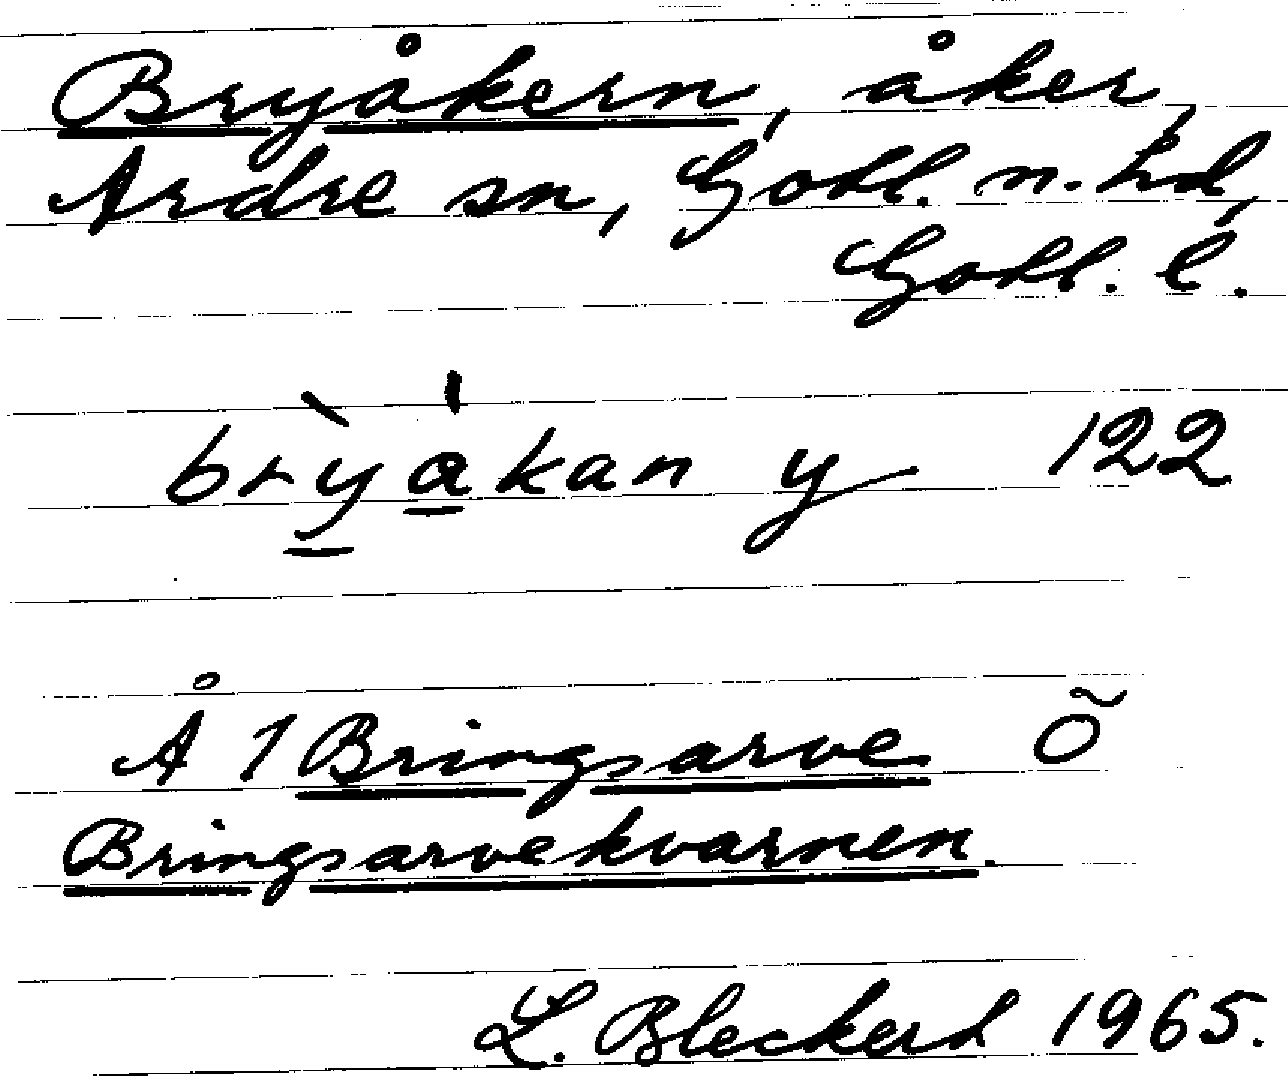 Bryåkern, åker,
Ardre sn, Gotl. n. hd,
Gotl. l.
brỳ̱a̱̍kan y 122
Å 1 Bringsarve Õ
Bringsarvekvarnen.
L. Bleckert 1965.